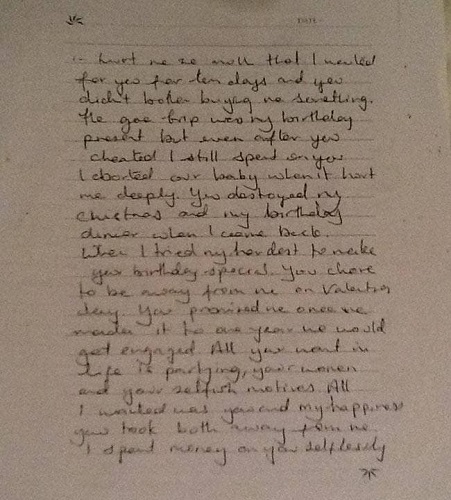 DATE
hurt me so much that I waited
for you for ten days and you
didn't bother buying me something.
The goa trip was my birthday
present but even after you
cheated I still spent on you
I aborted our baby when it hurt
me deeply. You destroyed my
Christmas and my birthday
dinner when I came back.
When I tried my hardest to make
your birthday special. You chose
to be away from me on Valentines
day. You promised me once we
made it to one year we would
get engaged. All you want in
life is partying, your women
and your selfish motives. All
I wanted was you and my happiness
you took both away from me
I spent money on you selflessly